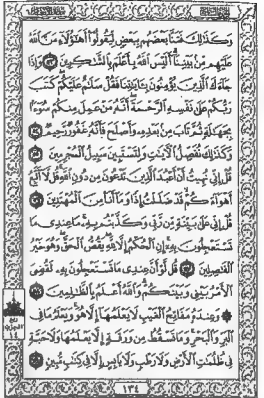 وَكَذَٰلِكَ فَتَنَّا بَعْضَهُم بِبَعْضٍ لِّيَقُولُوٓا۟ أَهَٰٓؤُلَآءِ مَنَّ ٱللَّهُ
عَلَيْهِم مِّنۢ بَيْنِنَآ أَلَيْسَ ٱللَّهُ بِأَعْلَمَ بِٱلشَّٰكِرِينَ ٥٣ وَإِذَا
جَآءَكَ ٱلَّذِينَ يُؤْمِنُونَ بِـَٔايَٰتِنَا فَقُلْ سَلَٰمٌ عَلَيْكُمْ كَتَبَ
رَبُّكُمْ عَلَىٰ نَفْسِهِ ٱلرَّحْمَةَ أَنَّهُۥ مَنْ عَمِلَ مِنكُمْ سُوٓءًۢا
بِجَهَٰلَةٍ ثُمَّ تَابَ مِنۢ بَعْدِهِۦ وَأَصْلَحَ فَأَنَّهُۥ غَفُورٌ رَّحِيمٌ ٥٤
وَكَذَٰلِكَ نُفَصِّلُ ٱلْءَايَٰتِ وَلِتَسْتَبِينَ سَبِيلُ ٱلْمُجْرِمِينَ ٥٥
قُلْ إِنِّى نُهِيتُ أَنْ أَعْبُدَ ٱلَّذِينَ تَدْعُونَ مِن دُونِ ٱللَّهِ قُل لَّآ أَتَّبِعُ
أَهْوَآءَكُمْ قَدْ ضَلَلْتُ إِذًا وَمَآ أَنَا۠ مِنَ ٱلْمُهْتَدِينَ ٥٦
قُلْ إِنِّى عَلَىٰ بَيِّنَةٍ مِّن رَّبِّى وَكَذَّبْتُم بِهِۦ مَا عِندِى مَا
تَسْتَعْجِلُونَ بِهِۦٓ إِنِ ٱلْحُكْمُ إِلَّا لِلَّهِ يَقُصُّ ٱلْحَقَّ وَهُوَ خَيْرُ
ٱلْفَٰصِلِينَ ٥٧ قُل لَّوْ أَنَّ عِندِى مَا تَسْتَعْجِلُونَ بِهِۦ لَقُضِىَ
ٱلْأَمْرُ بَيْنِى وَبَيْنَكُمْ وَٱللَّهُ أَعْلَمُ بِٱلظَّٰلِمِينَ ٥٨
وَعِندَهُۥ مَفَاتِحُ ٱلْغَيْبِ لَا يَعْلَمُهَآ إِلَّا هُوَ وَيَعْلَمُ مَا فِى
ٱلْبَرِّ وَٱلْبَحْرِ وَمَا تَسْقُطُ مِن وَرَقَةٍ إِلَّا يَعْلَمُهَا وَلَا حَبَّةٍ
فِى ظُلُمَٰتِ ٱلْأَرْضِ وَلَا رَطْبٍ وَلَا يَابِسٍ إِلَّا فِى كِتَٰبٍ مُّبِينٍ ٥٩
١٣٤